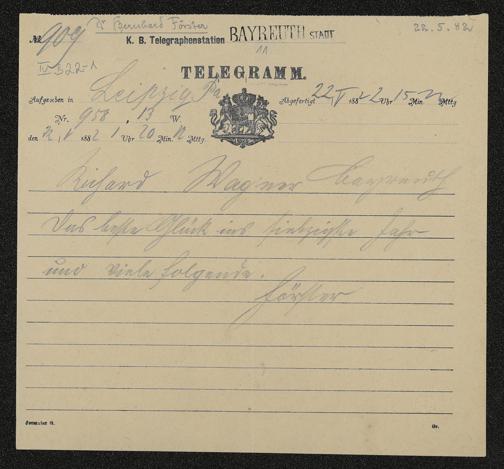 Dr Bernhard Förster
22.5.82
№ 909 K. B. Telegraphenstation BAYREUTH STADT
IV B 22-1
TELEGRAMM.
Aufgegeben in Leipzig
Abgefertigt 22/V 1882 2 Uhr 15 Min. Mttg.
Nr. 958 13 W.
den 22/V 1882 1 Uhr 20 Min. Mttg.
Richard Wagner Bayreuth
Das beste Glück ins siebzigste Jahr
und viele folgende.
Förster